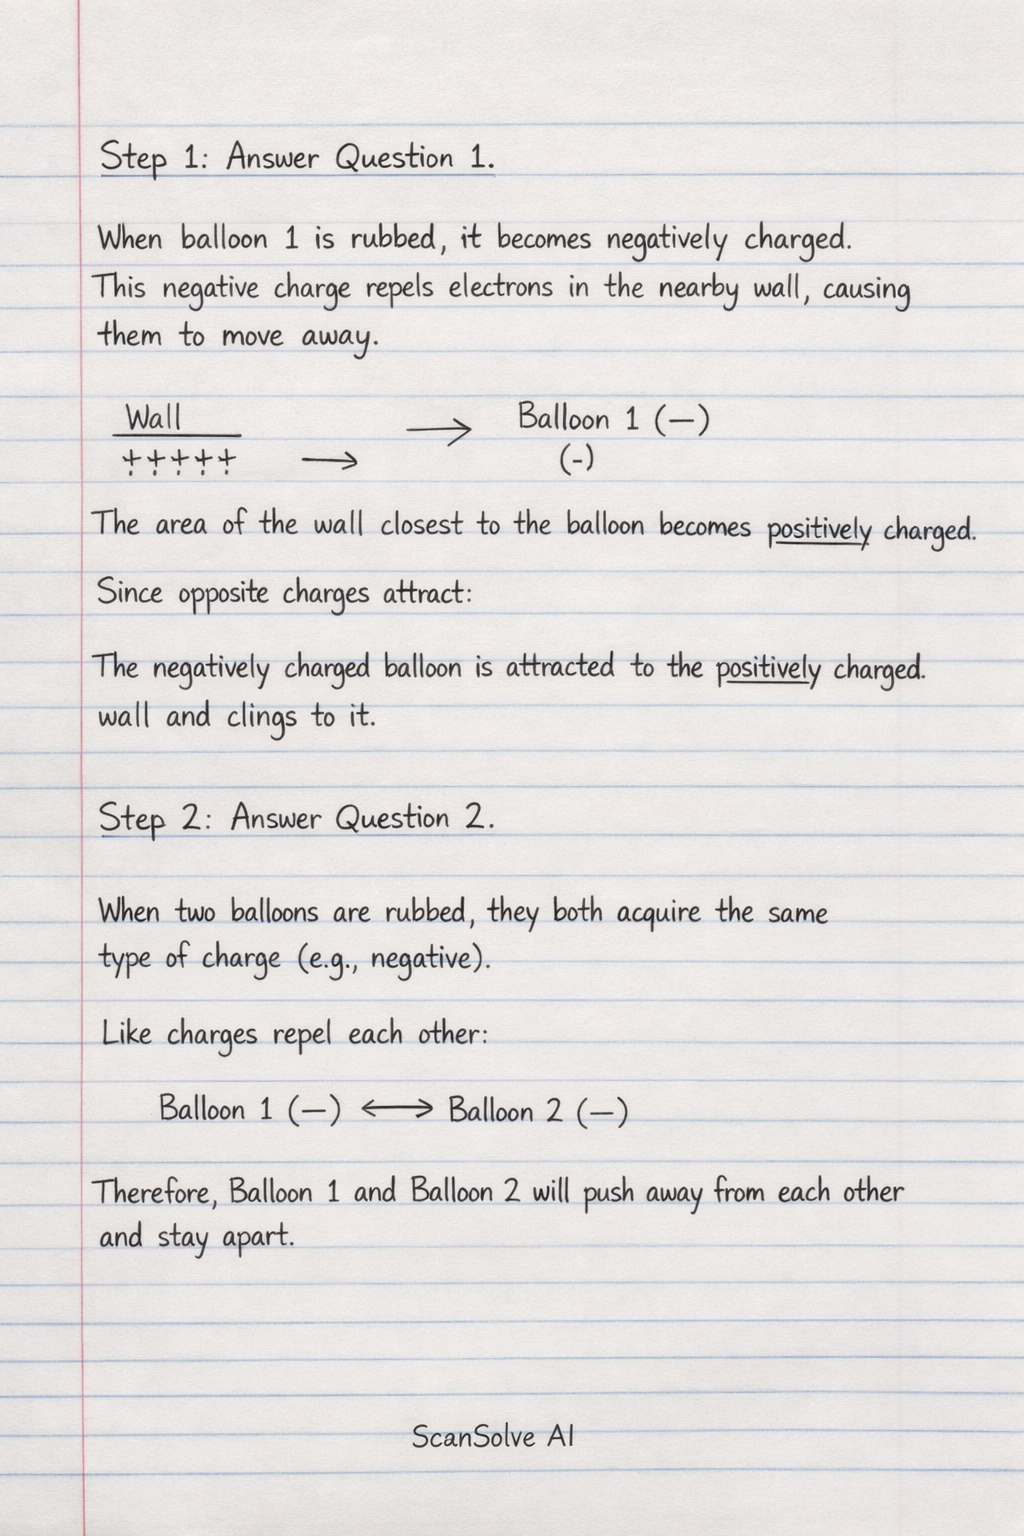 Step 1: Answer Question 1.
When balloon 1 is rubbed, it becomes negatively charged.
This negative charge repels electrons in the nearby wall, causing
them to move away.
Wall → Balloon 1 (—)
+++++ → (-)
The area of the wall closest to the balloon becomes positively charged.
Since opposite charges attract:
The negatively charged balloon is attracted to the positively charged.
wall and clings to it.
Step 2: Answer Question 2.
When two balloons are rubbed, they both acquire the same
type of charge (e.g., negative).
Like charges repel each other:
Balloon 1 (—) ⟷ Balloon 2 (—)
Therefore, Balloon 1 and Balloon 2 will push away from each other
and stay apart.
ScanSolve AI